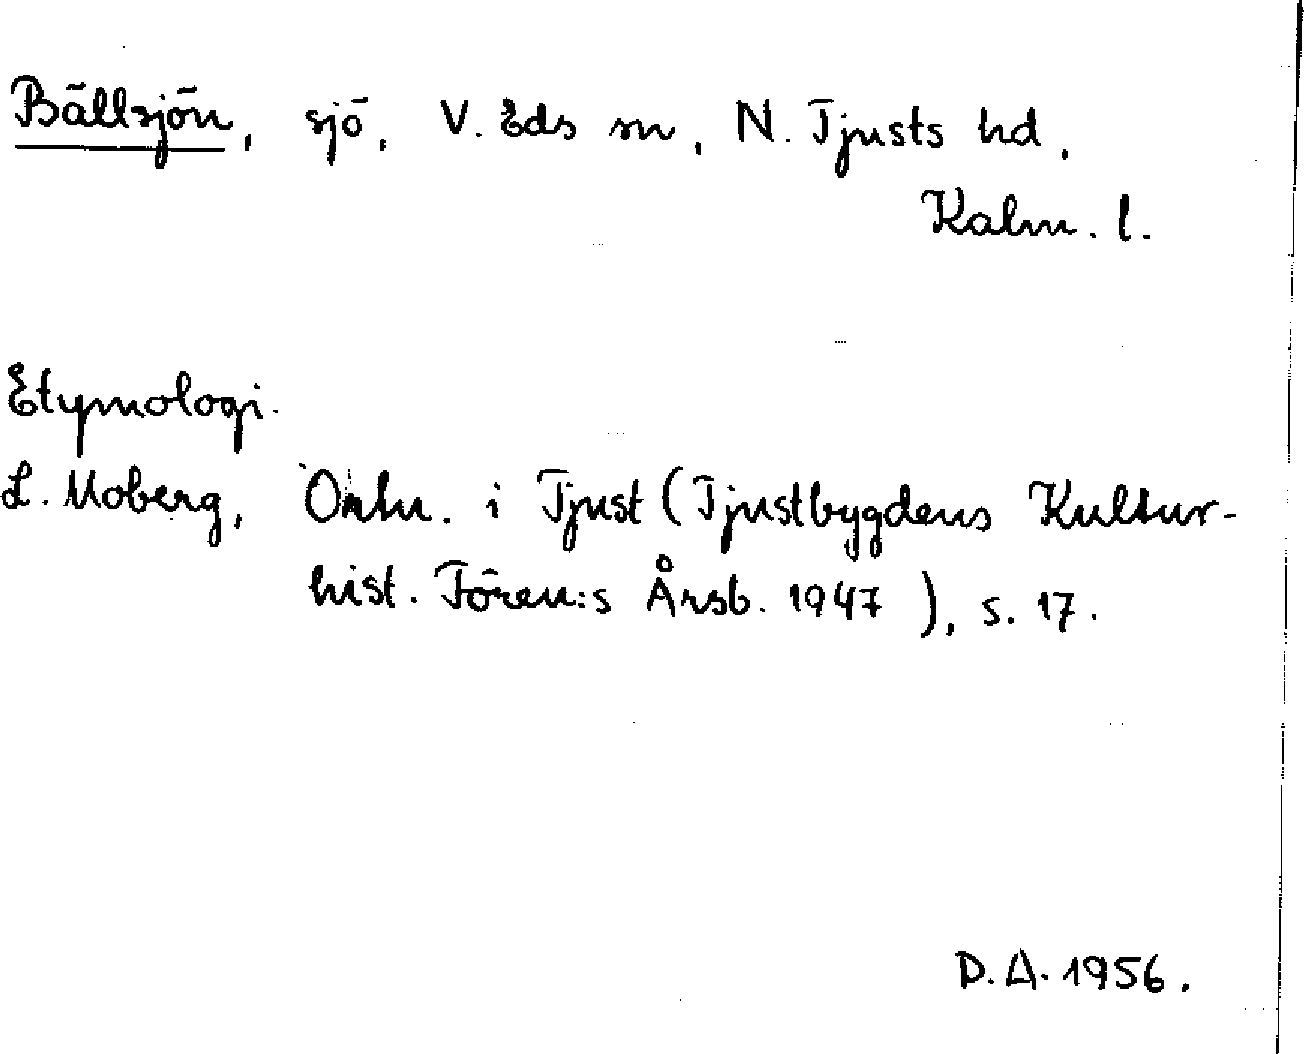 Bällsjön, sjö, V. Eds sn, N. Tjusts hd,
Kalm. l.
Etymologi.
L. Moberg, Ortn. i Tjust (Tjustbygdens Kultur-
hist. Fören:s Årsb. 1947), s. 17.
D. A. 1956.